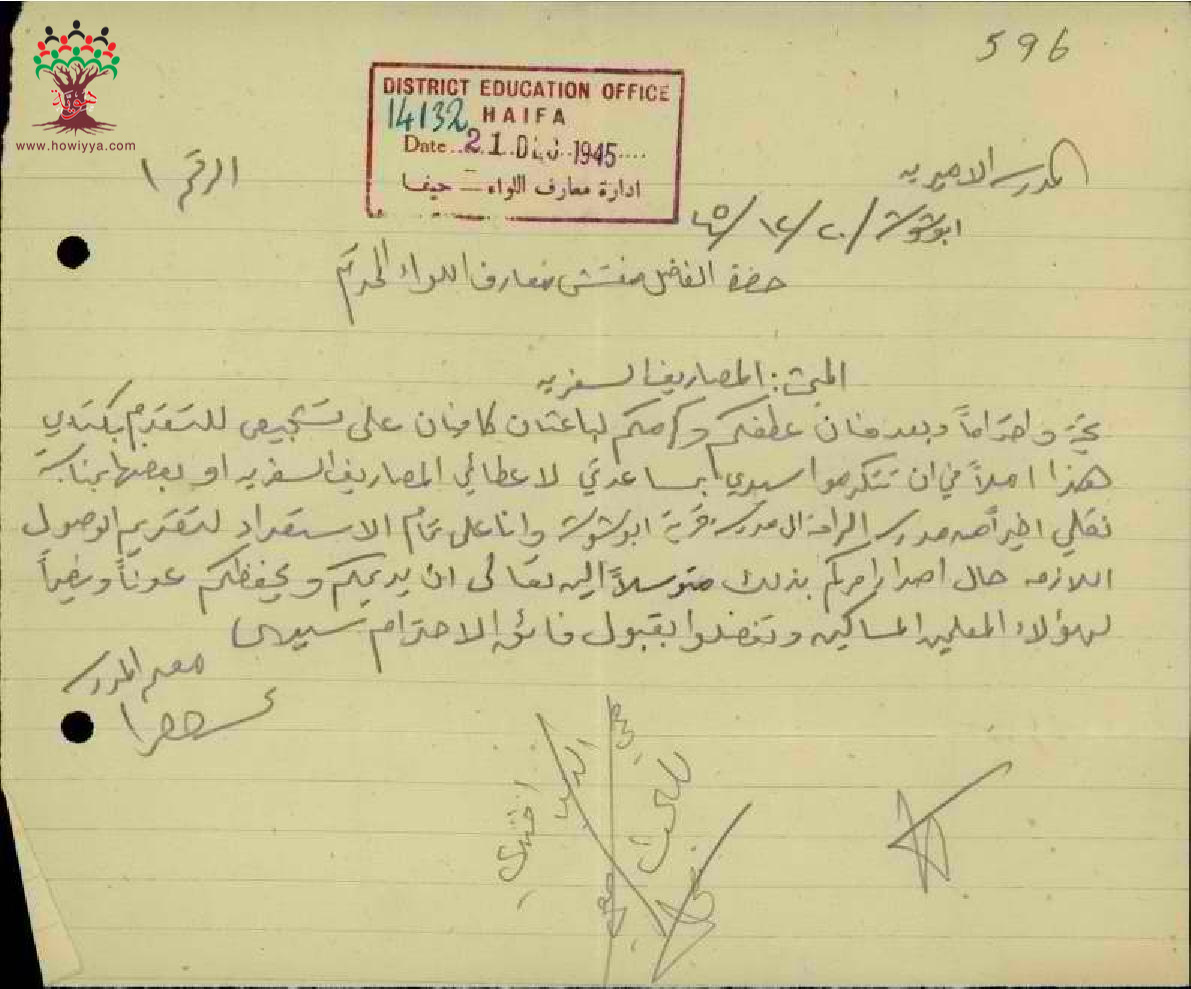 596
DISTRICT EDUCATION OFFICE
14132 HAIFA
Date 21 DEC 1945
ادارة معارف اللواء — حيفا
هوية
www.howiyya.com
المدرسة الاميرية
الرقم ١
ابوشوشة / ٢٠ / ١٢ / ٤٥
حضرة الفاضل مفتش معارف اللواء المحترم
المبحث: المصاريف السفرية
تحية واحتراماً وبعد فان عطفكم وكرمكم لباعثان كافيان على تشجيعي للتقدم بكتابي
هذا املاً في ان تتكرموا سيدي بمساعدتي لاعطائي المصاريف السفرية او بعضها بمناسبة
نقلي اخيراً من مدرسة الى مدرسة قرية ابوشوشة وانا على تمام الاستعداد لتقديم الوصول
اللازمة حال اصدار امركم بذلك متوسلاً اليه تعالى ان يديمكم ويحفظكم عوناً
لهؤلاء المعلمين المساكين وتفضلوا بقبول فائق الاحترام سيدي
معلم المدرسة